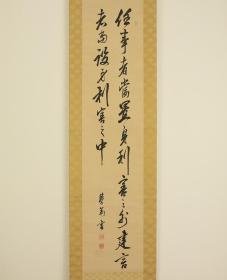 任事者當置身利害之外建言
者當設身利害之中